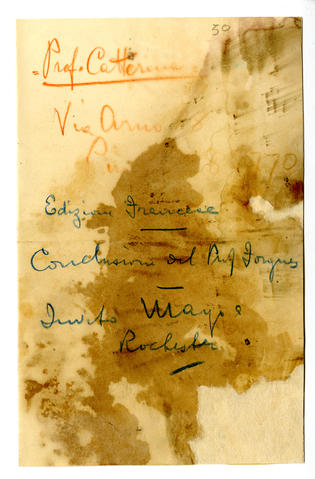 50
Prof. Catterina
Via Arno
Edizion Francese
Conclusioni del Prof Forgues
Invito Mayo
Rochester